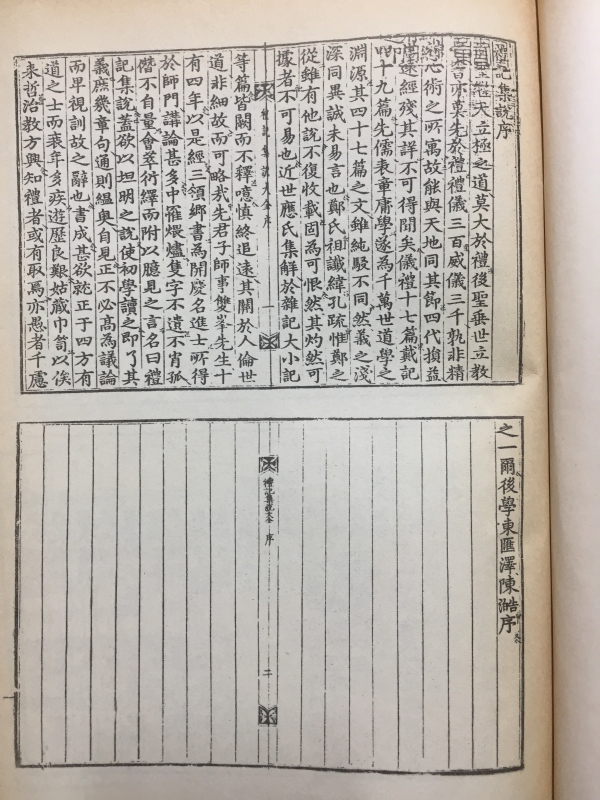 禮記集說序
前聖繼天立極之道莫大於禮後聖垂世立教
之書亦莫先於禮禮儀三百威儀三千孰非精
神心術之所寓故能與天地同其節四代損益
世遠經殘其詳不可得聞矣儀禮十七篇戴記
四十九篇先儒表章庸學遂為千萬世道學之
淵源其四十七篇之文雖純駁不同然義之淺
深同異誠未易言也鄭氏祖讖緯孔疏惟鄭之
從雖有他說不復收載固為可恨然其灼然可
據者不可易也近世應氏集解於雜記大小記
禮記集說大全序 一
等篇皆闕而不釋噫慎終追遠其關於人倫世
道非細故而可略哉先君子師事雙峯先生十
有四年以是經三領鄉書為開慶名進士所得
於師門講論甚多中罹煨燼隻字不遺不肖孤
僭不自量會萃衍繹而附以臆見之言名曰禮
記集說蓋欲以坦明之說使初學讀之即了其
義庶幾章句通則縕奧自見正不必高為議論
而卑視訓故之辭也書成甚欲就正于四方有
道之士而衰年多疾遊歷良艱姑藏巾笥以俟
來哲治教方興知禮者或有取焉亦愚者千慮
之一爾後學東匯澤陳澔序
禮記集說大全 序 二